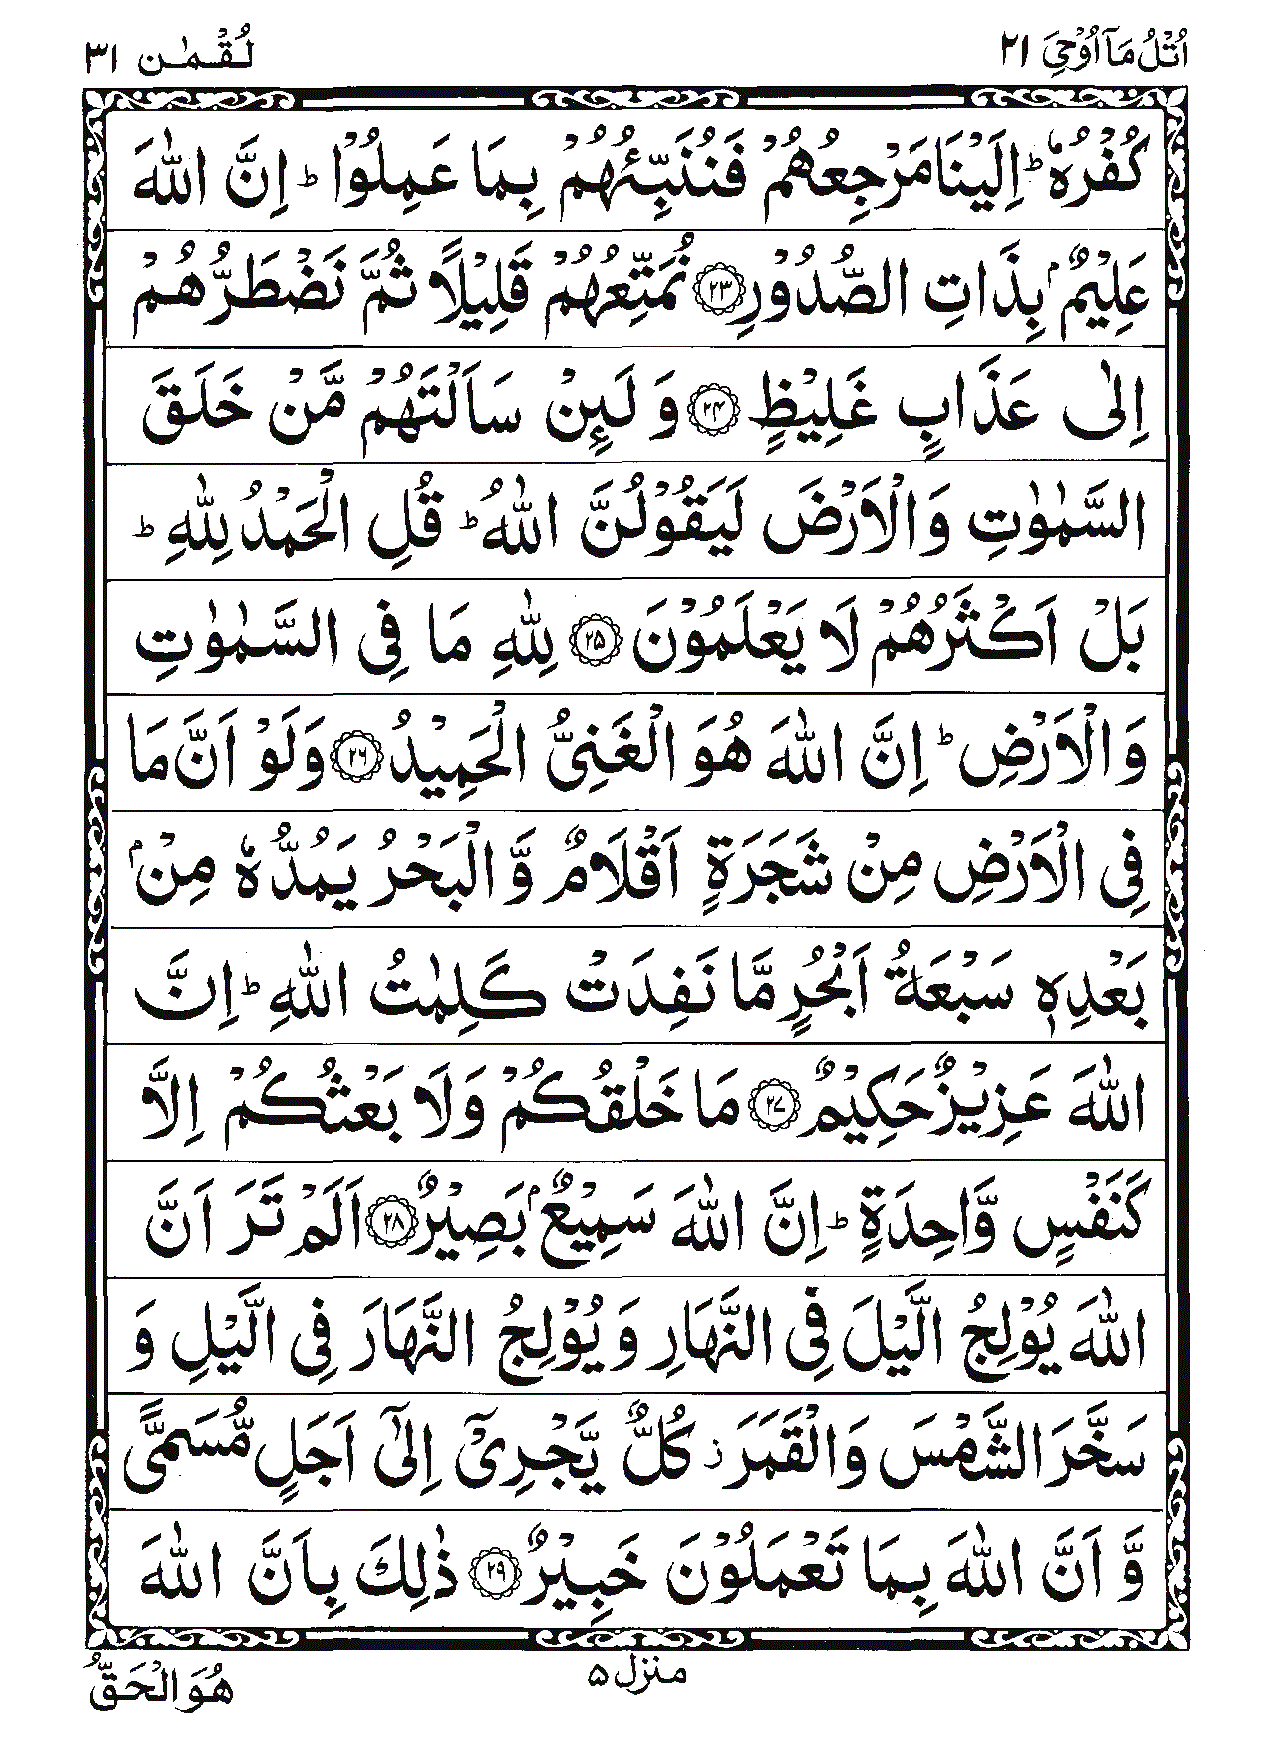 اُتْلُ مَاۤ اُوْحِیَ ٢١
لُقْمٰن ٣١
كُفْرُهٗ ؕ اِلَیْنَا مَرْجِعُهُمْ فَنُنَبِّئُهُمْ بِمَا عَمِلُوْا ؕ اِنَّ اللّٰهَ
عَلِیْمٌۢ بِذَاتِ الصُّدُوْرِ ﴿٢٣﴾ نُمَتِّعُهُمْ قَلِیْلًا ثُمَّ نَضْطَرُّهُمْ
اِلٰی عَذَابٍ غَلِیْظٍ ﴿٢٤﴾ وَ لَىِٕنْ سَاَلْتَهُمْ مَّنْ خَلَقَ
السَّمٰوٰتِ وَالْاَرْضَ لَیَقُوْلُنَّ اللّٰهُ ؕ قُلِ الْحَمْدُ لِلّٰهِ ؕ
بَلْ اَكْثَرُهُمْ لَا یَعْلَمُوْنَ ﴿٢٥﴾ لِلّٰهِ مَا فِی السَّمٰوٰتِ
وَالْاَرْضِ ؕ اِنَّ اللّٰهَ هُوَ الْغَنِیُّ الْحَمِیْدُ ﴿٢٦﴾ وَلَوْ اَنَّ مَا
فِی الْاَرْضِ مِنْ شَجَرَةٍ اَقْلَامٌ وَّ الْبَحْرُ یَمُدُّهٗ مِنْۢ
بَعْدِهٖ سَبْعَةُ اَبْحُرٍ مَّا نَفِدَتْ كَلِمٰتُ اللّٰهِ ؕ اِنَّ
اللّٰهَ عَزِیْزٌ حَكِیْمٌ ﴿٢٧﴾ مَا خَلْقُكُمْ وَلَا بَعْثُكُمْ اِلَّا
كَنَفْسٍ وَّاحِدَةٍ ؕ اِنَّ اللّٰهَ سَمِیْعٌۢ بَصِیْرٌ ﴿٢٨﴾ اَلَمْ تَرَ اَنَّ
اللّٰهَ یُوْلِجُ الَّیْلَ فِی النَّهَارِ وَ یُوْلِجُ النَّهَارَ فِی الَّیْلِ وَ
سَخَّرَ الشَّمْسَ وَالْقَمَرَ ؗ كُلٌّ یَّجْرِیْۤ اِلٰۤی اَجَلٍ مُّسَمًّی
وَّ اَنَّ اللّٰهَ بِمَا تَعْمَلُوْنَ خَبِیْرٌ ﴿٢٩﴾ ذٰلِكَ بِاَنَّ اللّٰهَ
منزل ۵
هُوَ الْحَقُّ